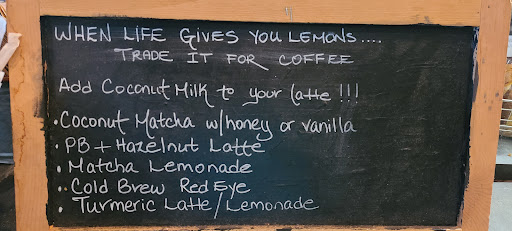 WHEN LIFE GIVES YOU LEMONS....
TRADE IT FOR COFFEE
Add Coconut Milk to your latte !!!
• Coconut Matcha w/honey or vanilla
• PB + Hazelnut Latte
• Matcha Lemonade
• Cold Brew Red Eye
• Turmeric Latte/Lemonade